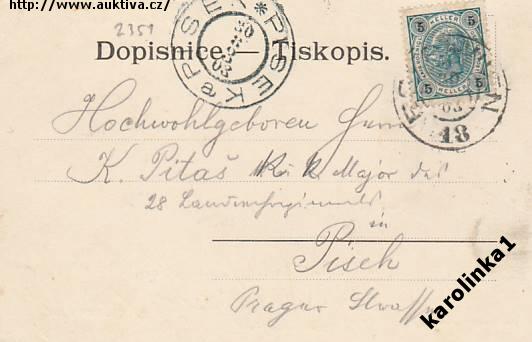 http://www.auktiva.cz/
2351
Dopisnice. — Tiskopis.
PISEK * PÍSEK
5 5
HELLER HELLER
18
Hochwohlgeboren Herrn
K. Pitaš K. k. Major des
28 Landwehrregiments
in
Pisek
Prager Strasse
karolinka1